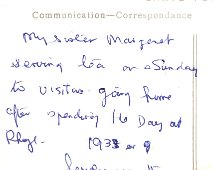 Communication—Correspondance
My sister Margaret
serving tea on a Sunday
to visitors going home
after spending the Day at
Rhyl. 1938 or 9